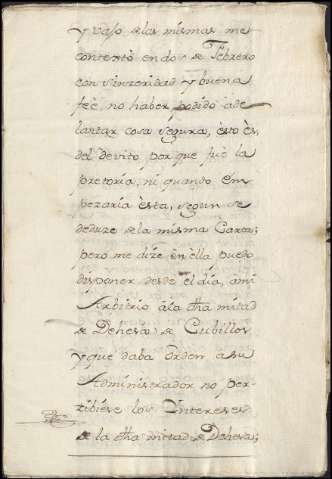 y vajo de las mismas me
contestó en dos de Febrero
con sinzeridad y buena
feè, no haber podido ade
lantar cosa segura, ésto és,
del devito porque fuè la
pretoría, ni quando ém
pezaría ésta, segun se
deduze de la misma Carta;
pero me dize én élla puedo
disponer desde él dia, á mi
Arbitrio á la dha mitad
de Dehesa de Cubillos
y que daba orden a su
Administrador no per-
tibiése los Intereses
de la dha mitad de Dehesa;